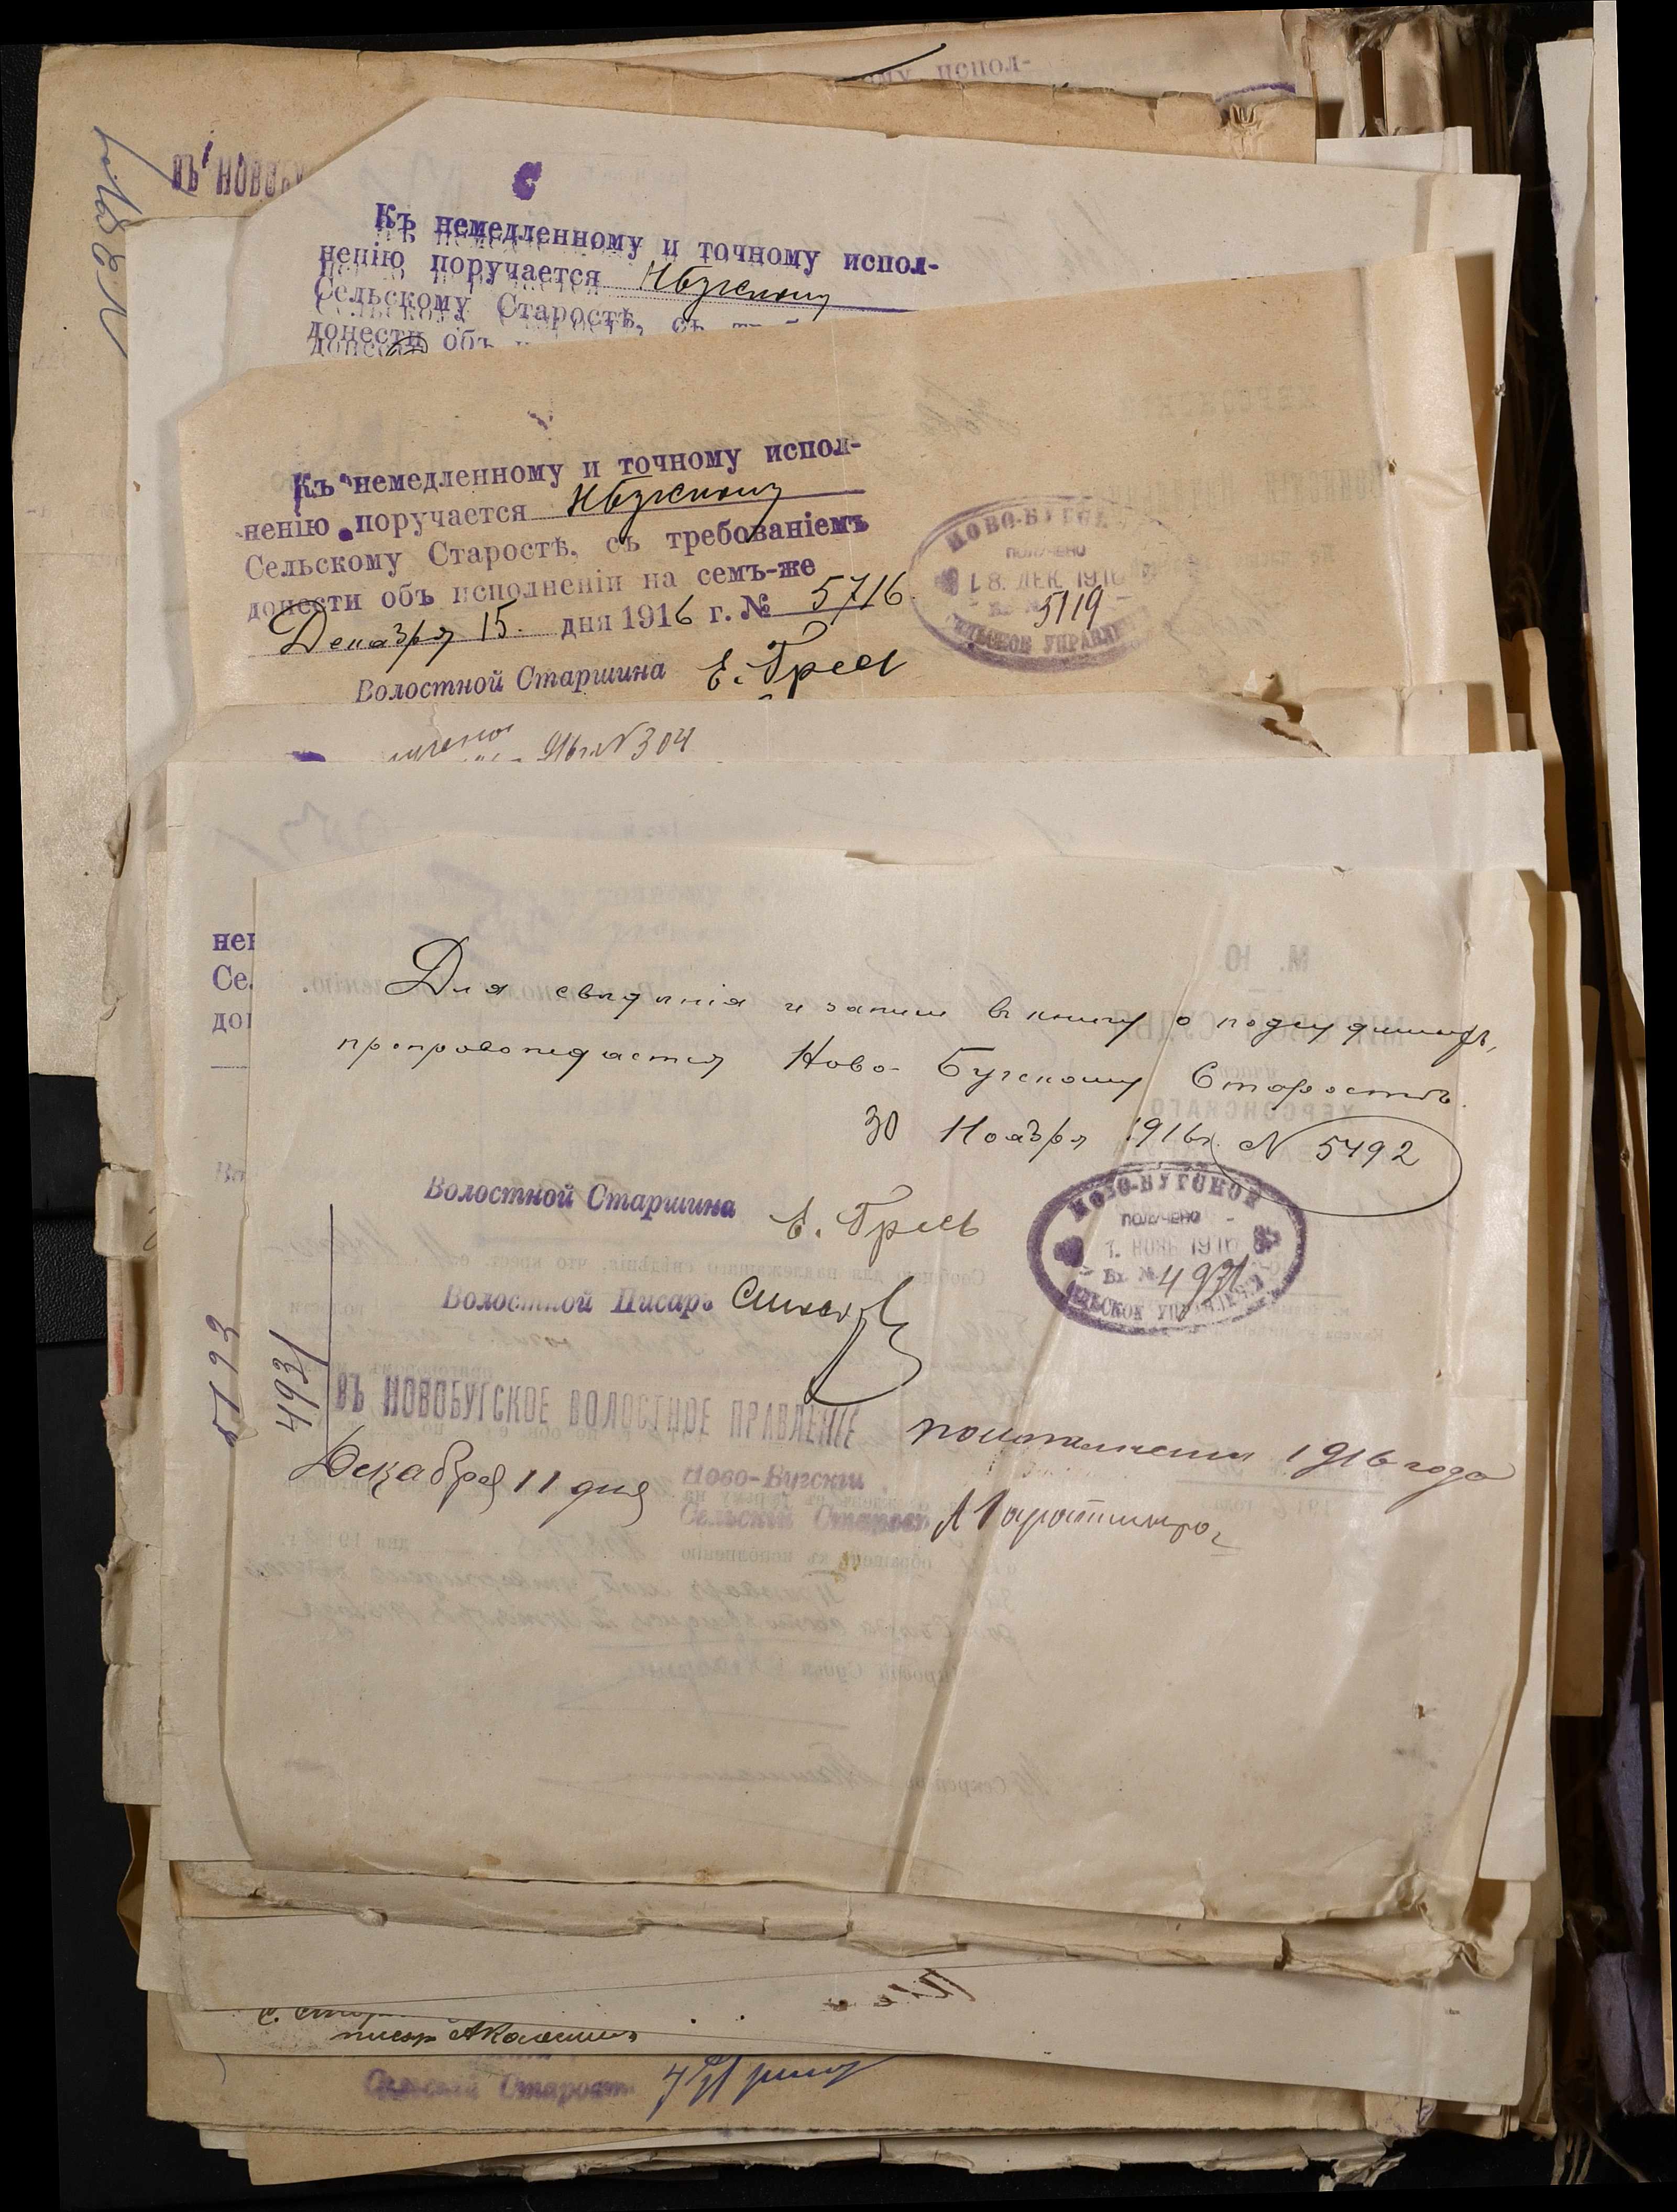 ому испол-
ВЪ НОВОБУ
Къ немедленному и точному испол-
ненію поручается Нбугскому
Сельскому Старостѣ, съ треб
донести объ
Къ немедленному и точному испол-
ненію поручается Нбугскому
Сельскому Старостѣ, съ требованіемъ
донести объ исполненіи на семъ-же
Декабря 15. дня 1916 г. № 5716.
Волостной Старшина Е. Гресь
НОВО-БУГСК
ПОЛУЧЕНО
18. ДЕК. 1916
Вх. № 5119
СЕЛЬСКОЕ УПРАВЛЕН
916 г. № 304
нен
Се
дон
Для свѣдѣнія и записи въ книгу о подсудимыхъ,
препровождается Ново-Бугскому Старостѣ.
30 Ноября 1916 г. № 5492
Волостной Старшина Е. Гресь
Волостной Писарь
НОВО-БУГСКОЕ
ПОЛУЧЕНО
1. НОЯБ 1916
Вх. № 4931
СЕЛЬСКОЕ УПРАВЛЕНІЕ
5193
4931
ВЪ НОВОБУГСКОЕ ВОЛОСТНОЕ ПРАВЛЕНІЕ
Декабря 11 дня 1916 года
Ново-Бугскій
Сельскій Староста
писарь
Сельскій Староста